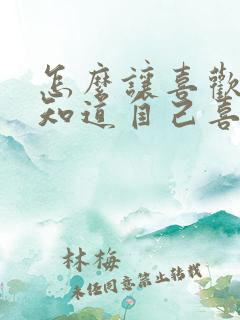 怎麼讓喜歡
知道自己喜
林梅
未經同意禁止轉載